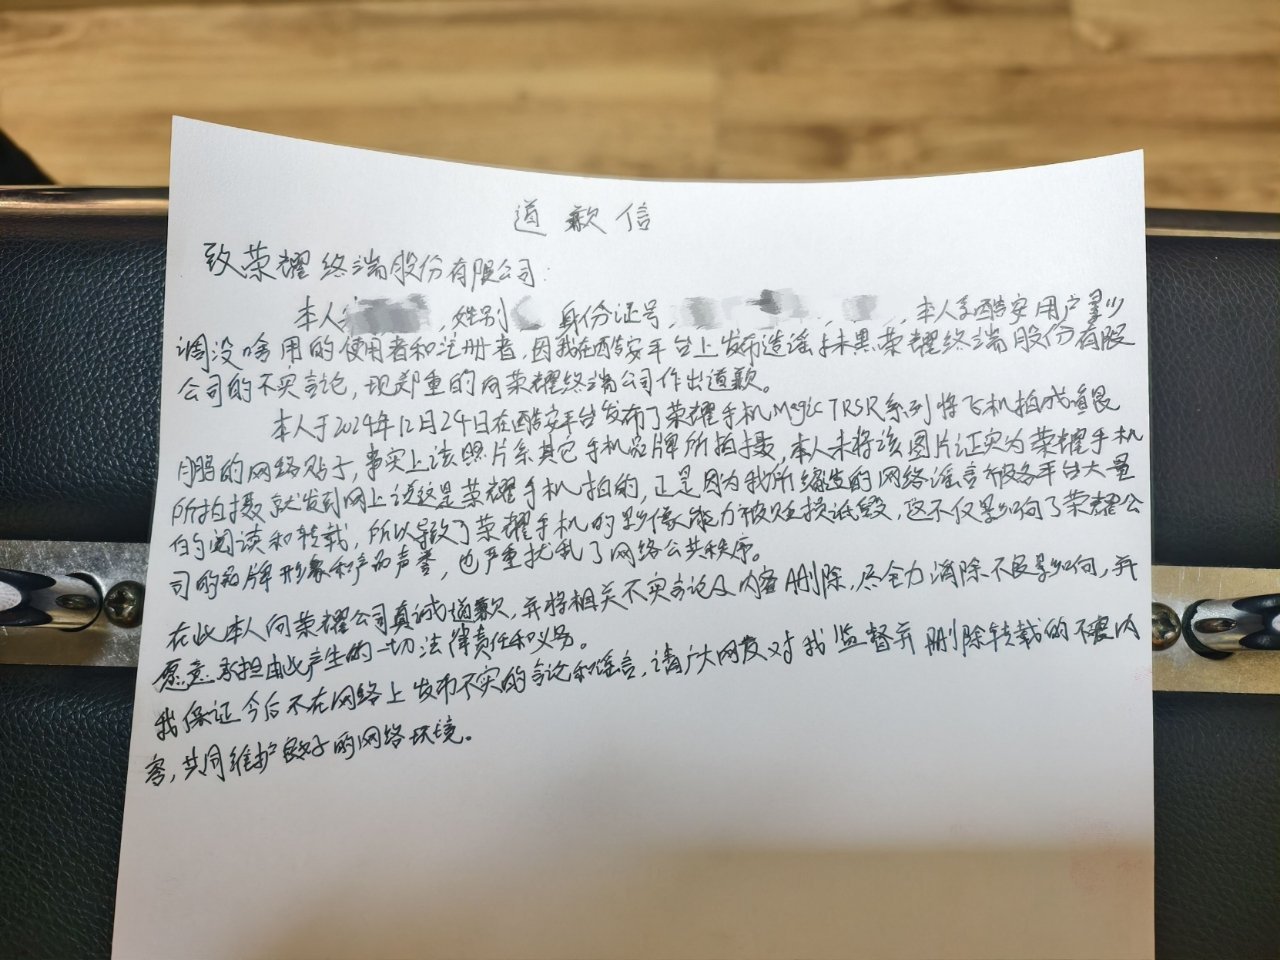 道歉信
致荣耀终端股份有限公司:
本人, 姓别 身份证号, , 本人系酷安用户
调没啥用的使用者和注册者, 因我在酷安平台上发布造谣抹黑荣耀终端股份有限
公司的不实言论, 现郑重的向荣耀终端公司作出道歉。
本人于2024年12月24日在酷安平台发布了荣耀手机Magic7RSR系列将飞机拍成
鹏的网络贴子, 事实上该照片系其它手机品牌所拍摄, 本人未将该图片证实为荣耀手机
所拍摄就发到网上说这是荣耀手机拍的, 正是因为我所编造的网络谣言被各平台大量
的阅读和转载, 所以导致了荣耀手机的影像能力被贬损诋毁, 这不仅影响了荣耀公
司的品牌形象和产品声誉, 也严重扰乱了网络公共秩序。
在此本人向荣耀公司真诚道歉, 并将相关不实言论及内容删除, 尽全力消除不良影响, 并
愿意承担由此产生的一切法律责任和义务。
我保证今后不在网络上发布不实的言论和谣言, 请广大网友对我监督并删除转载的不良内
容, 共同维护良好的网络环境。